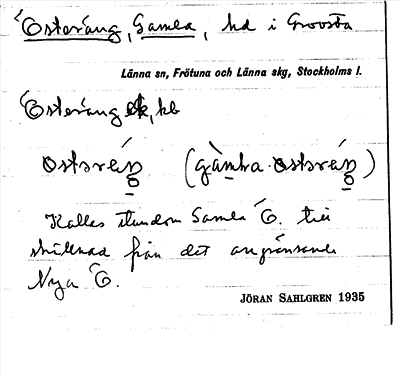 Österäng, Gamla, hd i Grovsta
Länna sn, Frötuna och Länna skg, Stockholms l.
Österäng, hb
Kallas stundom Gamla Ö. till
skillnad från det angränsande
Nya Ö.
JÖRAN SAHLGREN 1935